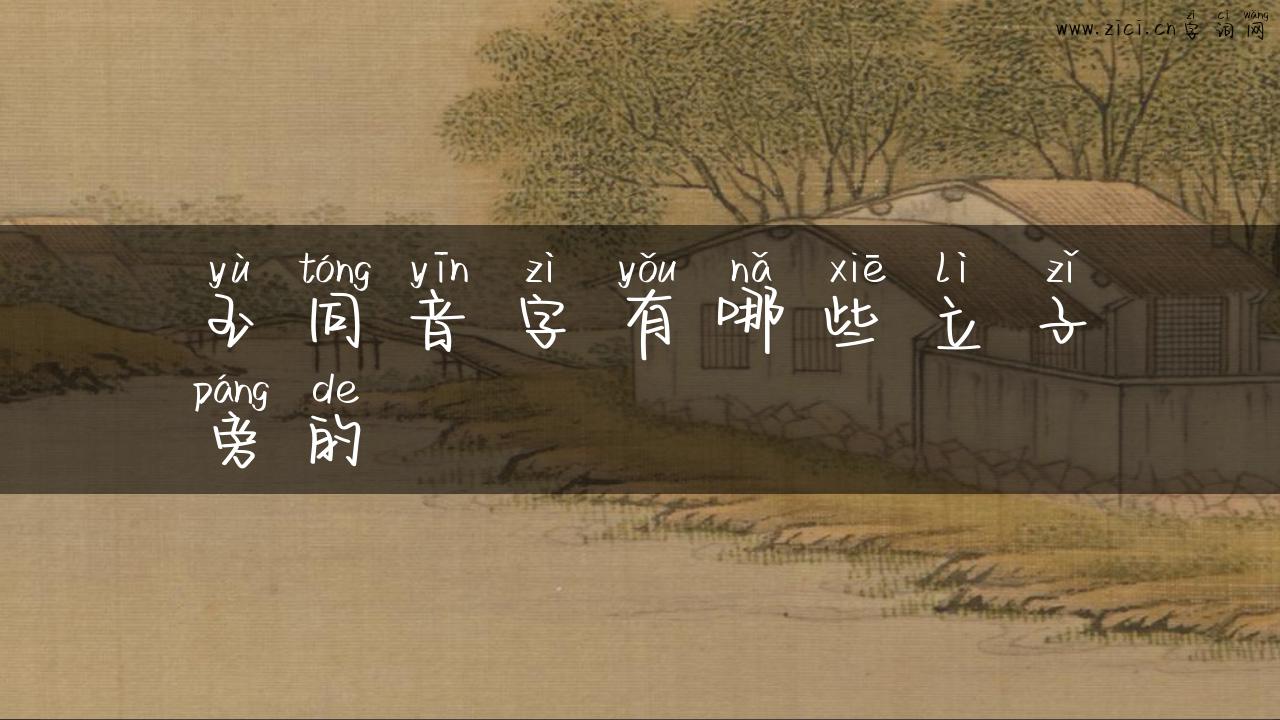 zì cí wǎng
www.zici.cn字词网
yù tóng yīn zì yǒu nǎ xiē lì zǐ
玉同音字有哪些立子
páng de
旁的